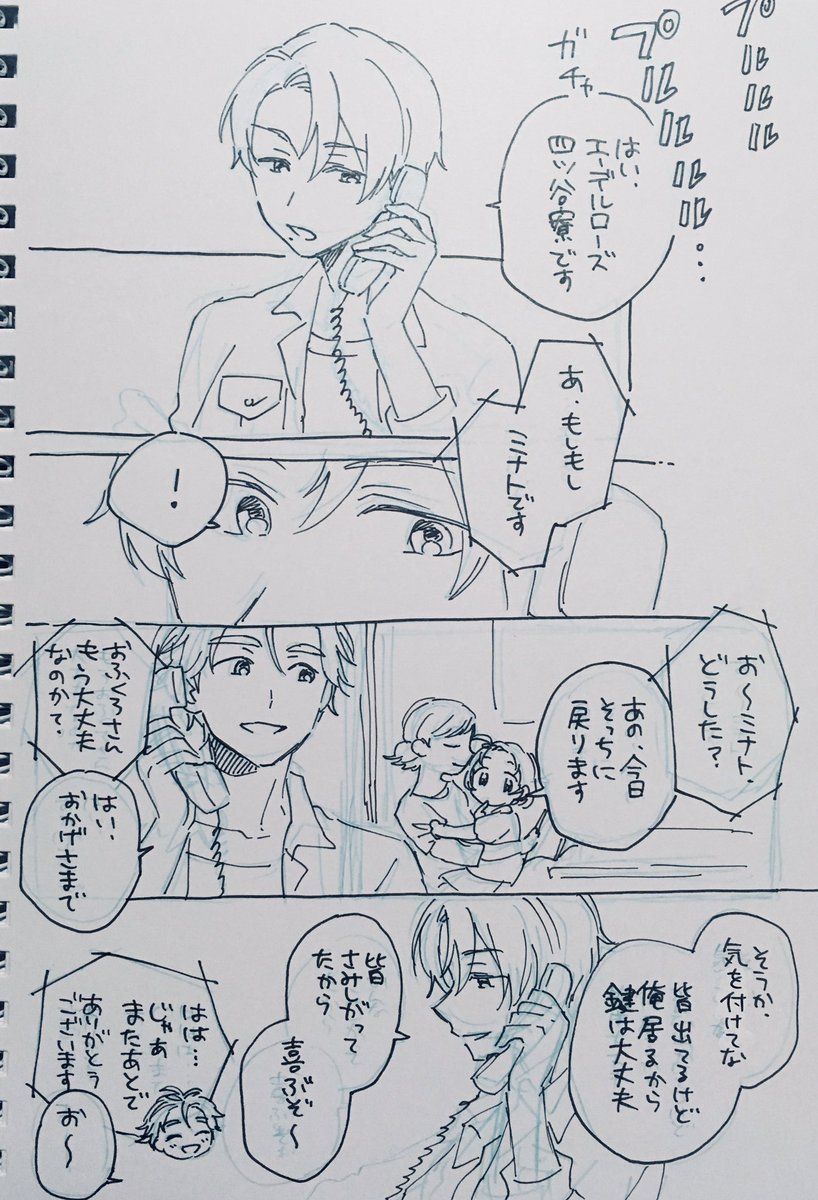 プルルル
プルルルル…
ガチャ
はい、
エーデルローズ
四ツ谷寮です
あ、もしもし
ミナトです
！
お〜ミナト、
どうした？
あの、今日
そっちに
戻ります
おふくろさん
もう大丈夫
なのかて？
はい、
おかげさまで
そうか、
気を付けてな
皆出てるけど
俺居るから
鍵は大丈夫
皆
さみしがって
たから
喜ぶぞ〜
はは…
じゃあ
またあとで
ありがとう
ございます
お〜